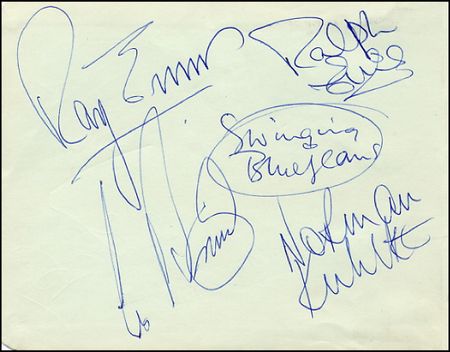 Ray Ennis
Ralph
Ellis
Swinging
Blue Jeans
Norman
Kuhlke